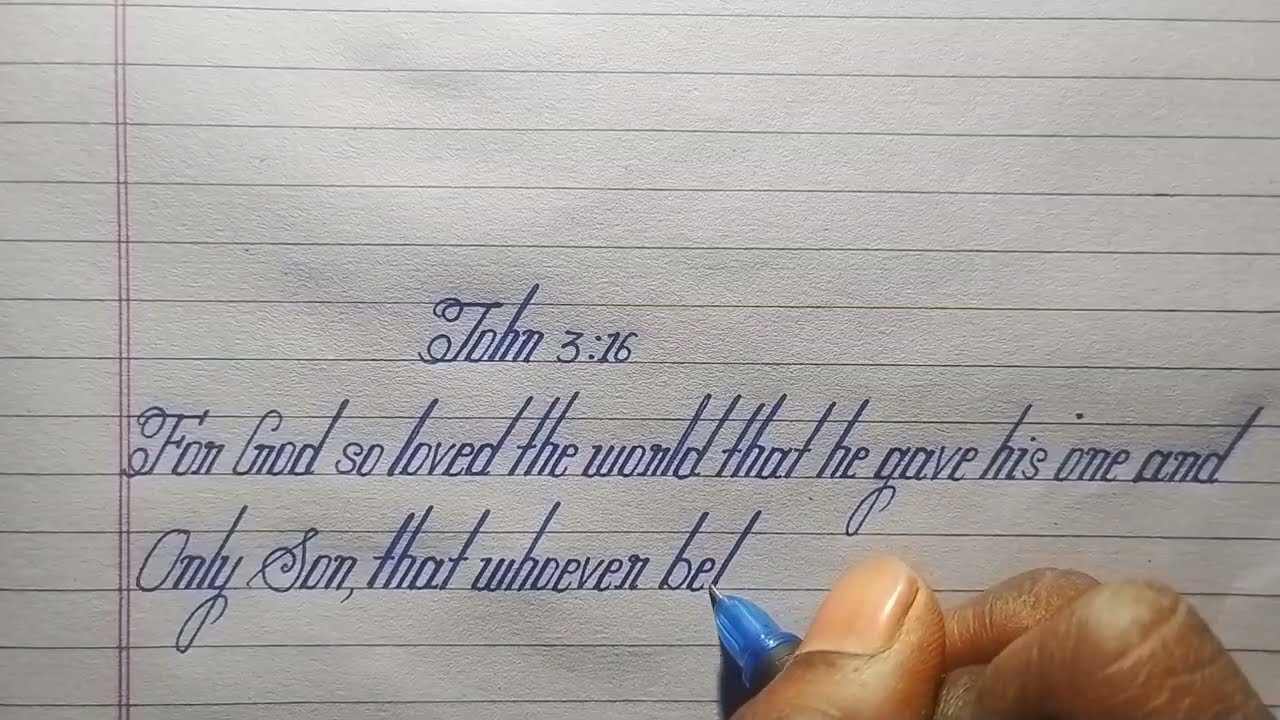 John 3:16
For God so loved the world that he gave his one and
Only Son, that whoever bel